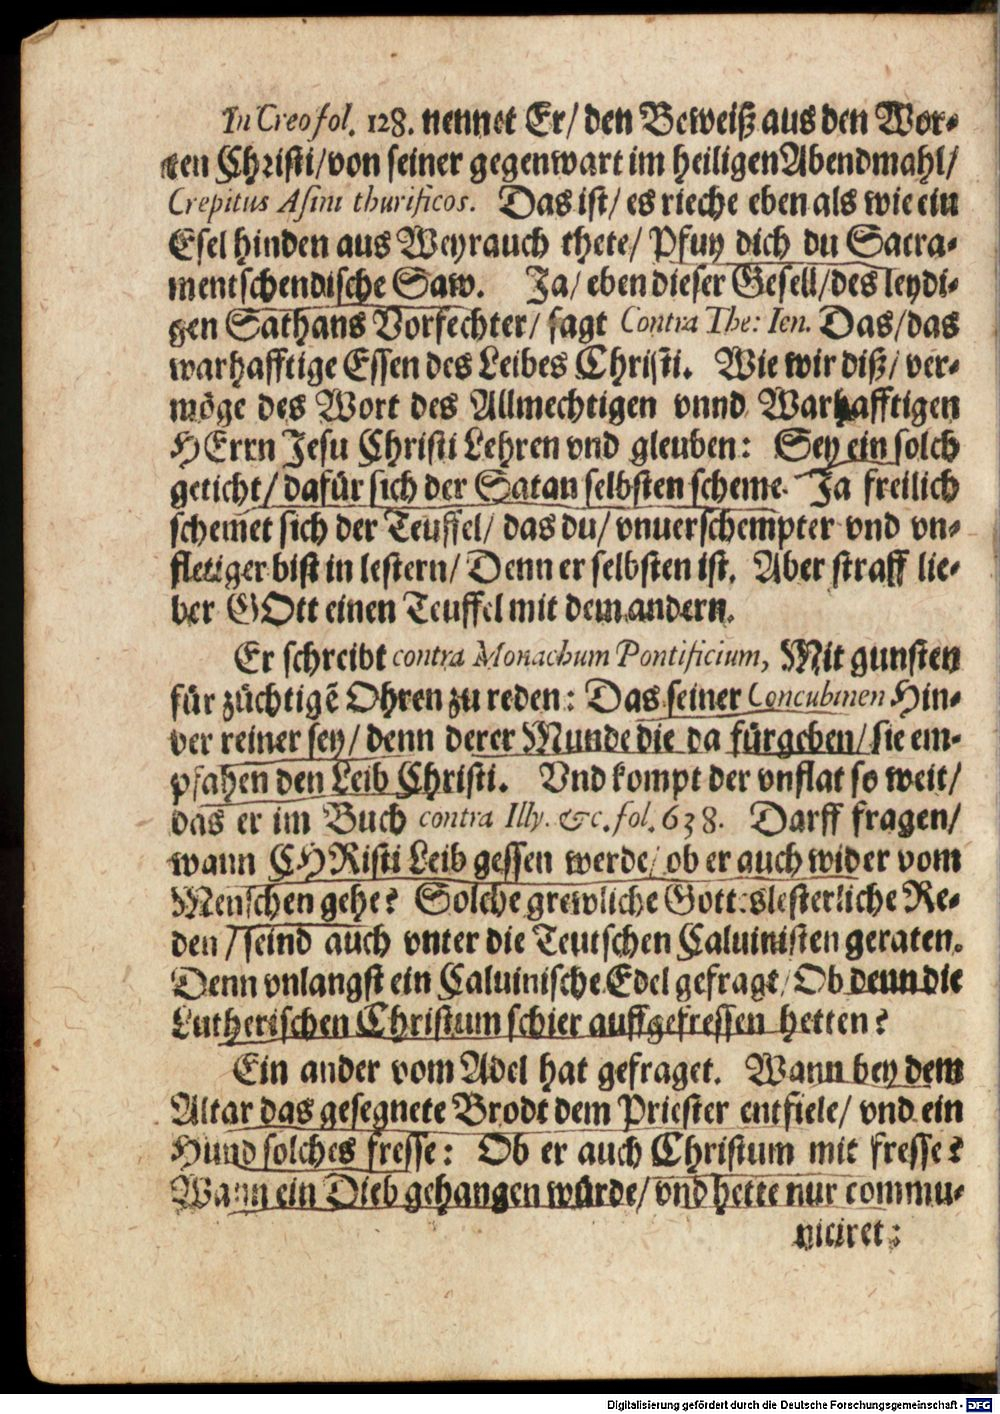 In Creo fol. 128. nennet Er/ den Beweiß aus den Wor-
ten Christi/ von seiner gegenwart im heiligen Abendmahl/
Crepitus Asini thurificos. Das ist/ es rieche eben als wie ein
Esel hinden aus Weyrauch thete/ Pfuy dich du Sacra-
mentschendische Saw. Ja/ eben dieser Gesell/ des leydi-
gen Sathans Vorfechter/ sagt Contra The: Ien. Das/ das
warhafftige Essen des Leibes Christi. Wie wir diß/ ver-
möge des Wort des Allmechtigen vnnd Warhafftigen
HErrn Jesu Christi Lehren vnd gleuben: Sey ein solch
geticht/ dafür sich der Satan selbsten scheme. Ja freilich
schemet sich der Teuffel/ das du/ vnuerschempter vnd vn-
fletiger bist in lestern/ Denn er selbsten ist. Aber straff lie-
ber GOtt einen Teuffel mit dem andern.
Er schreibt contra Monachum Pontificium, Mit gunsten
für züchtigẽ Ohren zu reden: Das seiner Concubinen Hin-
der reiner sey/ denn derer Munde die da fürgeben/ sie em-
pfahen den Leib Christi. Vnd kompt der vnflat so weit/
das er im Buch contra Illy. &c. fol. 638. Darff fragen/
wann CHRisti Leib gessen werde/ ob er auch wider vom
Menschen gehe? Solche grewliche Gotteslesterliche Re-
den/ seind auch vnter die Teutschen Caluinisten geraten.
Denn vnlangst ein Caluinische Edel gefragt/ Ob denn die
Lutherischen Christum schier auffgefressen hetten?
Ein ander vom Adel hat gefraget. Wann bey dem
Altar das gesegnete Brodt dem Priester entfiele/ vnd ein
Hund solches fresse: Ob er auch Christum mit fresse?
Wann ein Dieb gehangen würde/ vnd hette nur commu-
niciret:
Digitalisierung gefördert durch die Deutsche Forschungsgemeinschaft - DFG